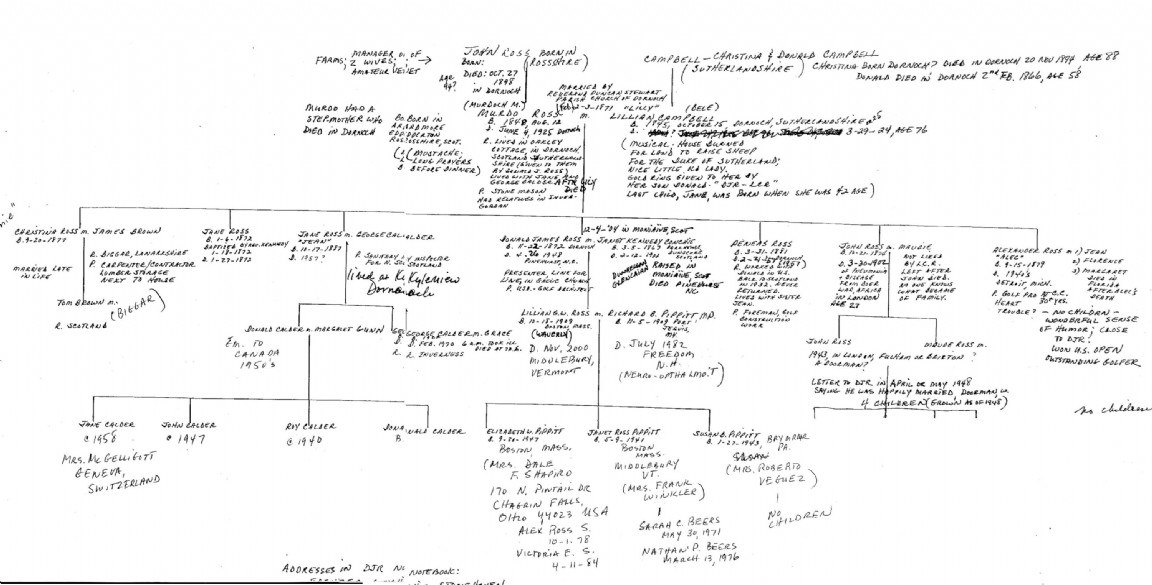 FARMS; MANAGER OF
2 WIVES;
AMATEUR VET
JOHN ROSS BORN IN
BORN: (ROSSHIRE)
DIED: OCT. 27
1898
IN DORNOCH
AGE
CAMPBELL - CHRISTINA & DONALD CAMPBELL
(SUTHERLANDSHIRE) CHRISTINA BORN DORNOCH? DIED IN DORNOCH 20 NOV 1894 AGE 88
DONALD DIED IN DORNOCH 2nd FEB. 1866, AGE 58
MARRIED BY
REVEREND DUNCAN STEWART
PARISH CHURCH OF DORNOCH
2-3-1871
MURDO HAD A
STEPMOTHER WHO
DIED IN DORNOCH
BORN IN
ARDMORE
EDDERTON
ROSSSHIRE, SCOT.
(MUSTACHE;
LONG PRAYERS
BEFORE DINNER)
(MURDOCH M.)
MURDO ROSS
B. 1848, AUG. 12
D. JUNE 4, 1925 DORNOCH
R. LIVED IN OAKLEY
COTTAGE, IN DORNOCH,
SCOTLAND SUTHERLAND-
SHIRE (GIVEN TO THEM
BY DONALD J. ROSS)
LIVED WITH JANE AND
GEORGE CALDER AFTER LILY
DIED
P. STONE MASON
HAD RELATIVES IN INVER-
GORDAN
m.
"LILLY" (BELL)
LILLIAN CAMPBELL
B. 1845, OCTOBER 15, DORNOCH, SUTHERLANDSHIRE
D. 3-29-24, AGE 76
(MUSICAL - HOUSE BURNED
FOR LAND TO RAISE SHEEP
FOR THE DUKE OF SUTHERLAND;
NICE LITTLE OLD LADY.
GOLD RING GIVEN TO HER BY
HER SON DONALD - "DJR-LCR"
LAST CHILD, JANE, WAS BORN WHEN SHE WAS 42 AGE)
CHRISTINA ROSS m. JAMES BROWN
B. 9-20-1877
MARRIED LATE
IN LIFE
R. BIGGAR, LANARKSHIRE
P. CARPENTER/CONTRACTOR
LUMBER STORAGE
NEXT TO HOUSE
TOM BROWN m.
(BIGGAR)
R. SCOTLAND
JANE ROSS
B. 1-4-1872
BAPTIZED BY REV. KENNEDY
1-18-1872
D. 1-27-1872
JANE ROSS m. GEORGE CALDER
"JEAN"
B. 10-17-1887
D. 1957?
P. SANITARY INSPECTOR
FOR SO. SCOTLAND
lived at Kyleview
Dornoch
12-4-'04 IN MONIAIVE, SCOT
DONALD JAMES ROSS m. JANET KENNEDY CONCHIE
B. 11-22-1872 DORNOCH
D. 4-26-1948
PINEHURST, N.C.
PRESENTER, LINE FOR
LINE, IN GAELIC CHURCH
P. USA - GOLF ARCHITECT
B. 3-5-1867
D. 2-12-1922
RAISED IN
MONIAIVE, SCOT
DIED PINEHURST
NC
AENEAS ROSS
B. 3-31-1881
LIVED WITH SISTER
JEAN.
P. FOREMAN, GOLF
CONSTRUCTION
WORK
JOHN ROSS m. MAUDIE
D. 3-20-1902
OF PNEUMONIA
+ DISEASE
FROM BOER
WAR, AFRICA
IN LONDON
AGE 27
NOT LIKED
BY L.C.R.
LEFT AFTER
JOHN DIED.
NO ONE KNOWS
WHAT BECAME
OF FAMILY.
ALEXANDER ROSS m. 1) JEAN
"ALEC" 2) FLORENCE
B. 9-15-1879 3) MARGARET
D. 1940's
DETROIT, MICH.
P. GOLF PRO AT C.C.
HEART 30 YRS.
TROUBLE?
DIED IN
FLORIDA
AFTER ALEC'S
DEATH
- NO CHILDREN -
WONDERFUL SENSE
OF HUMOR; CLOSE
TO DJR!
WON U.S. OPEN
OUTSTANDING GOLFER
no children
DONALD CALDER m. MARGARET GUNN
Em. TO
CANADA
1950's
GEORGE CALDER m. GRACE
D. FEB. 1970
R. INVERNESS
LILLIAN G.W. ROSS m. RICHARD B. PIPPITT MD.
(WAVERLY)
B. 10-13-1909
BOSTON, MASS.
D. NOV, 2000
MIDDLEBURY,
VERMONT
B. 11-5-1909 PORT
JERVIS,
NY
D. JULY 1982
FREEDOM
N.H.
(NEURO-OPTHALMO'T)
JOHN ROSS
1943, IN LONDON, FULHAM OR BRIXTON?
A DOORMAN?
MAUDE ROSS m.
?
LETTER TO DJR IN APRIL OR MAY 1948
SAYING HE WAS HAPPILY MARRIED DOORMAN W
4 CHILDREN (GROWN AS OF 1948)
JANE CALDER
C 1950
MRS. McGELLIGOTT
GENEVA,
SWITZERLAND
JOHN CALDER
C 1947
ROY CALDER
C 1940
DONALD CALDER
B
ELIZABETH W. PIPPITT
B. 9-20-1947
BOSTON, MASS.
(MRS. DALE
F. SHAPIRO)
170 N. PINTAIL DR
CHAGRIN FALLS,
OHIO 44023 USA
ALEX ROSS S.
10-1-78
VICTORIA E. S.
4-11-84
JANET ROSS PIPPITT
B. 5-9-1941
BOSTON
MASS
MIDDLEBURY
VT.
(MRS. FRANK
WINKLER)
SARAH C. BEERS
MAY 30, 1971
NATHAN P. BEERS
MARCH 13, 1976
SUSAN B. PIPPITT
B. 1-27-1943, BRYN MAWR
PA.
SUSAN
(MRS. ROBERTO
VEGUEZ)
NO
CHILDREN
ADDRESSES IN DJR NOTEBOOK: